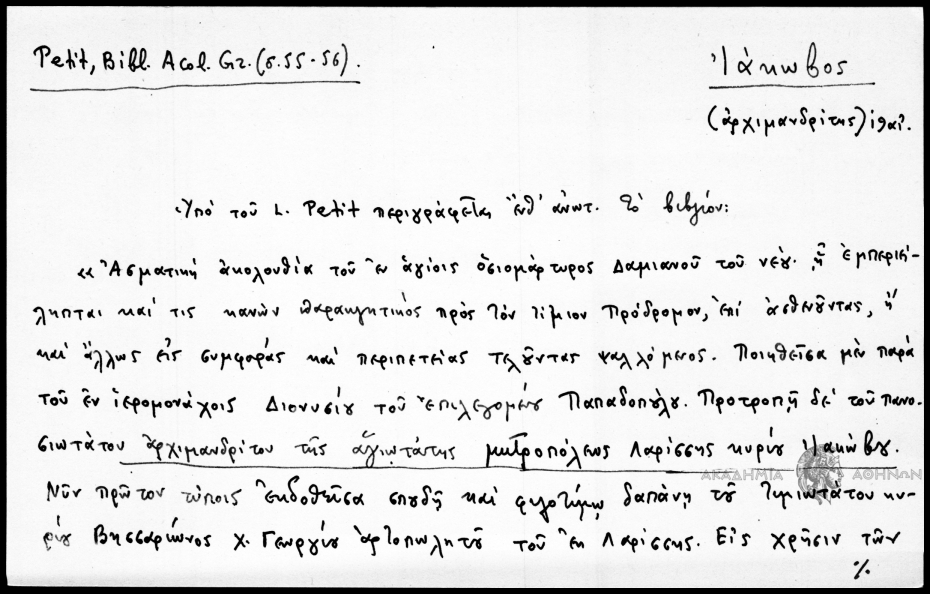 Petit, Bibl. Acol. Gr. (σ. 55-56).
Ἰάκωβος
(ἀρχιμανδρίτης) ιθ' αἰ.
Ὑπό τοῦ L. Petit περιγράφεται ἔνθ' ἀνωτ. τό βιβλίον:
«Ἀσματική ἀκολουθία τοῦ ἐν ἁγίοις ὁσιομάρτυρος Δαμιανοῦ τοῦ νέου. ᾗ ἐμπεριεί-
ληπται καί τις κανών παρακλητικός πρός τόν τίμιον Πρόδρομον, ἐπί ἀσθενοῦντας, ἤ
καί ἄλλως εἰς συμφοράς καί περιπετείας τελοῦντας ψαλλόμενος. Ποιηθεῖσα μέν παρά
τοῦ ἐν ἱερομονάχοις Διονυσίου τοῦ ἐπιλεγομένου Παπαδοπούλου. Προτροπῇ δέ τοῦ πανο-
σιωτάτου ἀρχιμανδρίτου τῆς ἁγιωτάτης μητροπόλεως Λαρίσσης κυρίου Ἰακώβου.
Νῦν πρῶτον τύποις ἐκδοθεῖσα σπουδῇ καί φιλοτίμῳ δαπάνῃ τοῦ τιμιωτάτου κυ-
ρίου Βησσαρίωνος χ. Γεωργίου ἀρτοπωλητοῦ τοῦ ἐκ Λαρίσσης. Εἰς χρῆσιν τῶν
%
ΑΚΑΔΗΜΙΑ ΑΘΗΝΩΝ